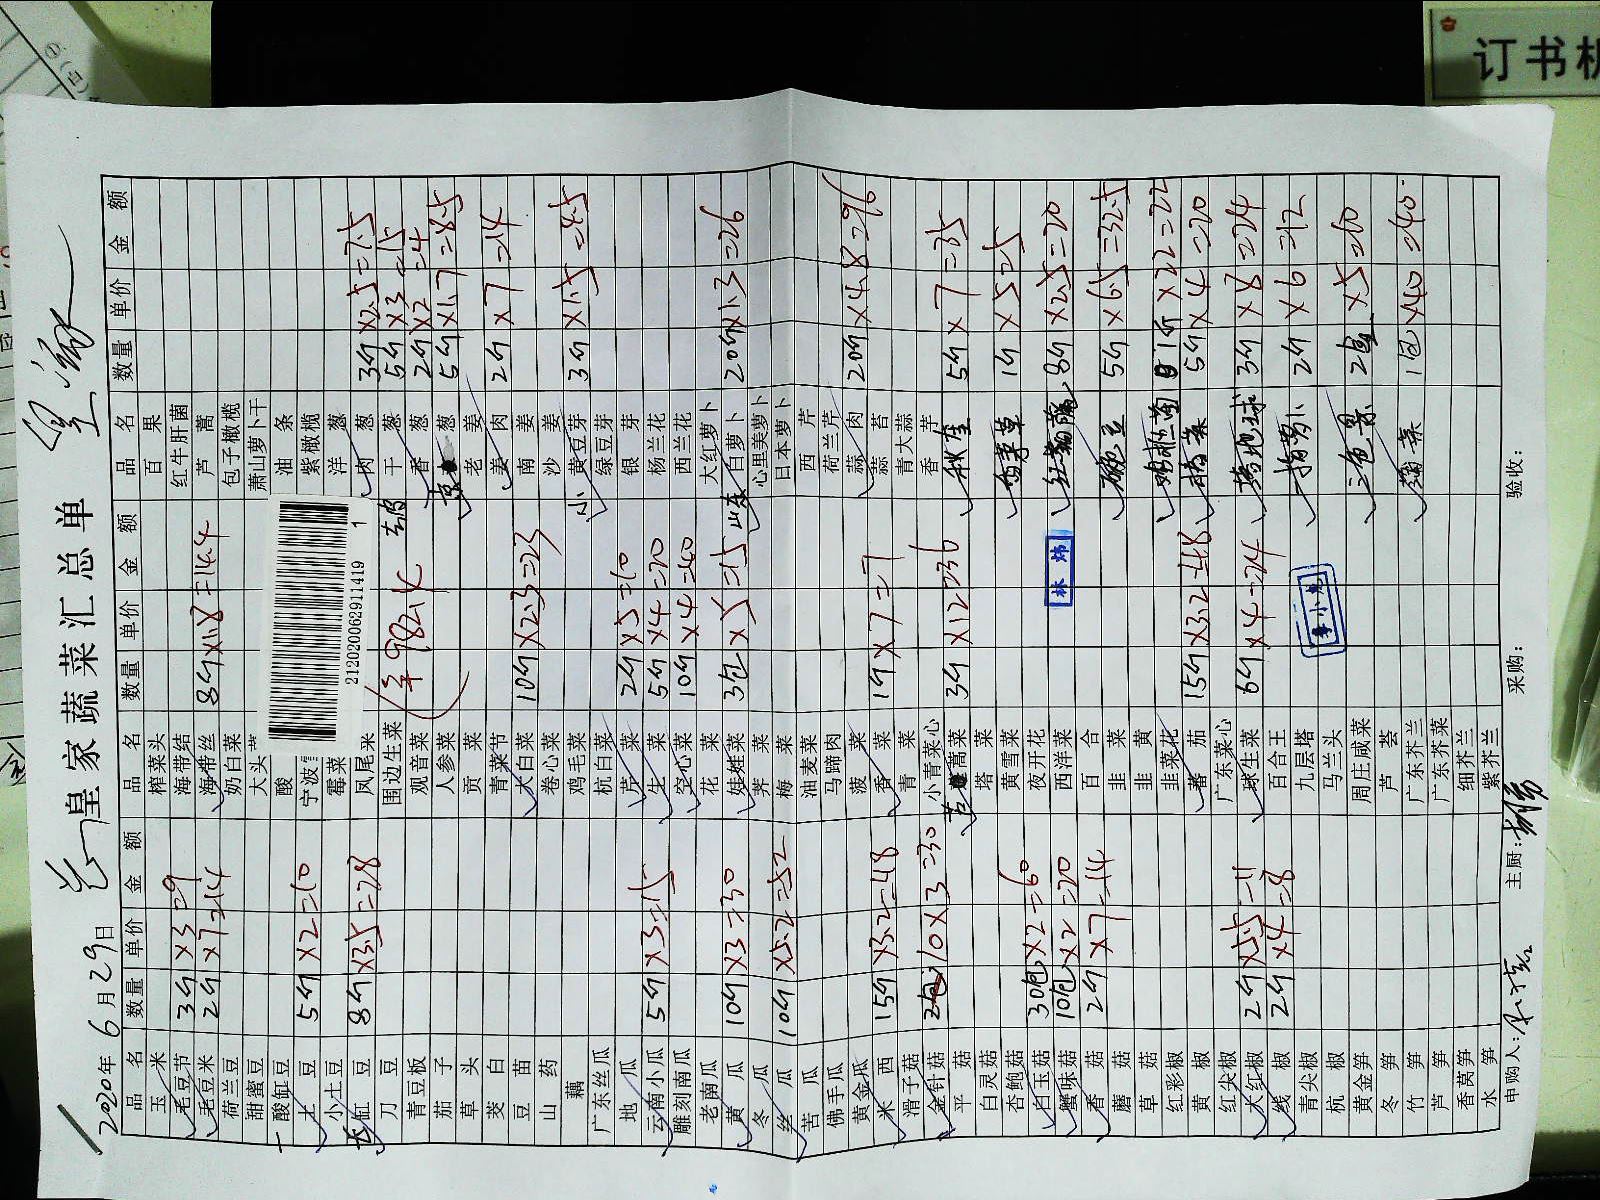 订书机
皇家蔬菜汇总单
2020年6月29日
品名 数量 单价 金额 品名 数量 单价 金额 品名 数量 单价 金额
玉米 榨菜头 百果
毛豆节 3斤 ×3 =9 海带结 红牛肝菌
毛豆米 2斤 ×7 =14 海带丝 8斤 ×1.8 =14.4 芦蒿
荷兰豆 奶白菜 包子橄榄
甜蜜豆 大头 萧山萝卜干
酸缸豆 酸 油条
土豆 5斤 ×2 =10 宁波 紫橄榄
小土豆 霉菜 洋葱
长缸豆 8斤 ×3.5 =28 凤尾菜 肉葱 3斤 ×2.5 =7.5
刀豆 围边生菜 干葱 5斤 ×3 =15
青豆板 观音菜 香葱 2斤 ×2 =4
茄子 人参菜 京葱 5斤 ×1.7 =8.5
草头 贡菜 老姜
茭白 青菜节 姜肉 2斤 ×7 =14
豆苗 大白菜 10斤 ×2.3 =23 南姜
山药 卷心菜 沙姜
藕 鸡毛菜 小黄豆芽 3斤 ×1.5 =4.5
广东丝瓜 杭白菜 绿豆芽
地瓜 芹菜 2斤 ×5 =10 银芽
云南小瓜 5斤 ×3 =15 生菜 5斤 ×4 =20 杨兰花
雕刻南瓜 空心菜 10斤 ×4 =40 西兰花
老南瓜 花菜 大红萝卜
黄瓜 10斤 ×3 =30 娃娃菜 3包 ×5 =15 山东白萝卜 20斤 ×1.3 =26
冬瓜 荠菜 心里美萝卜
丝瓜 10斤 ×5.2 =52 梅菜 日本萝卜
苦瓜 油麦菜 西芹
佛手瓜 马蹄肉 荷兰芹
黄金瓜 菠菜 蒜肉 20斤 ×4.8 =96
米西 15斤 ×3.2 =48 香菜 1斤 ×7 =7 蒜苔
滑子菇 青菜 青大蒜
金针菇 2包 10 ×3 =30 小菁菜心 香芹
平菇 苦蒿菜 3斤 ×12 =36 秋葵 5斤 ×7 =35
白灵菇 塔菜
杏鲍菇 黄雪菜 1斤 ×5 =5
白玉菇 30包 ×2 =60 夜开花
蟹味菇 10包 ×2 =20 西洋菜 8斤 ×2.5 =20
香菇 2斤 ×7 =14 百合
蘑菇 韭菜 豌豆 5斤 ×6.5 =32.5
草菇 韭黄
红彩椒 韭菜花 1斤 ×22 =22
黄椒 蕃茄 15斤 ×3.2 =48 5斤 ×4 =20
红尖椒 广东菜心
大红椒 2斤 ×5.5 =11 球生菜 6斤 ×4 =24 3斤 ×8 =24
线椒 2斤 ×4 =8 百合王
青尖椒 九层塔 2斤 ×6 =12
杭椒 马兰头
黄金笋 周庄咸菜 三色堇 2盒 ×5 =10
冬笋 芦荟
竹笋 广东芥兰 1包 ×40 =40
芦笋 广东芥菜
香莴笋 细芥兰
水笋 紫芥兰
212020062911419 1
982.4
林炜
李小龙
申购人: 主厨: 采购: 验收: